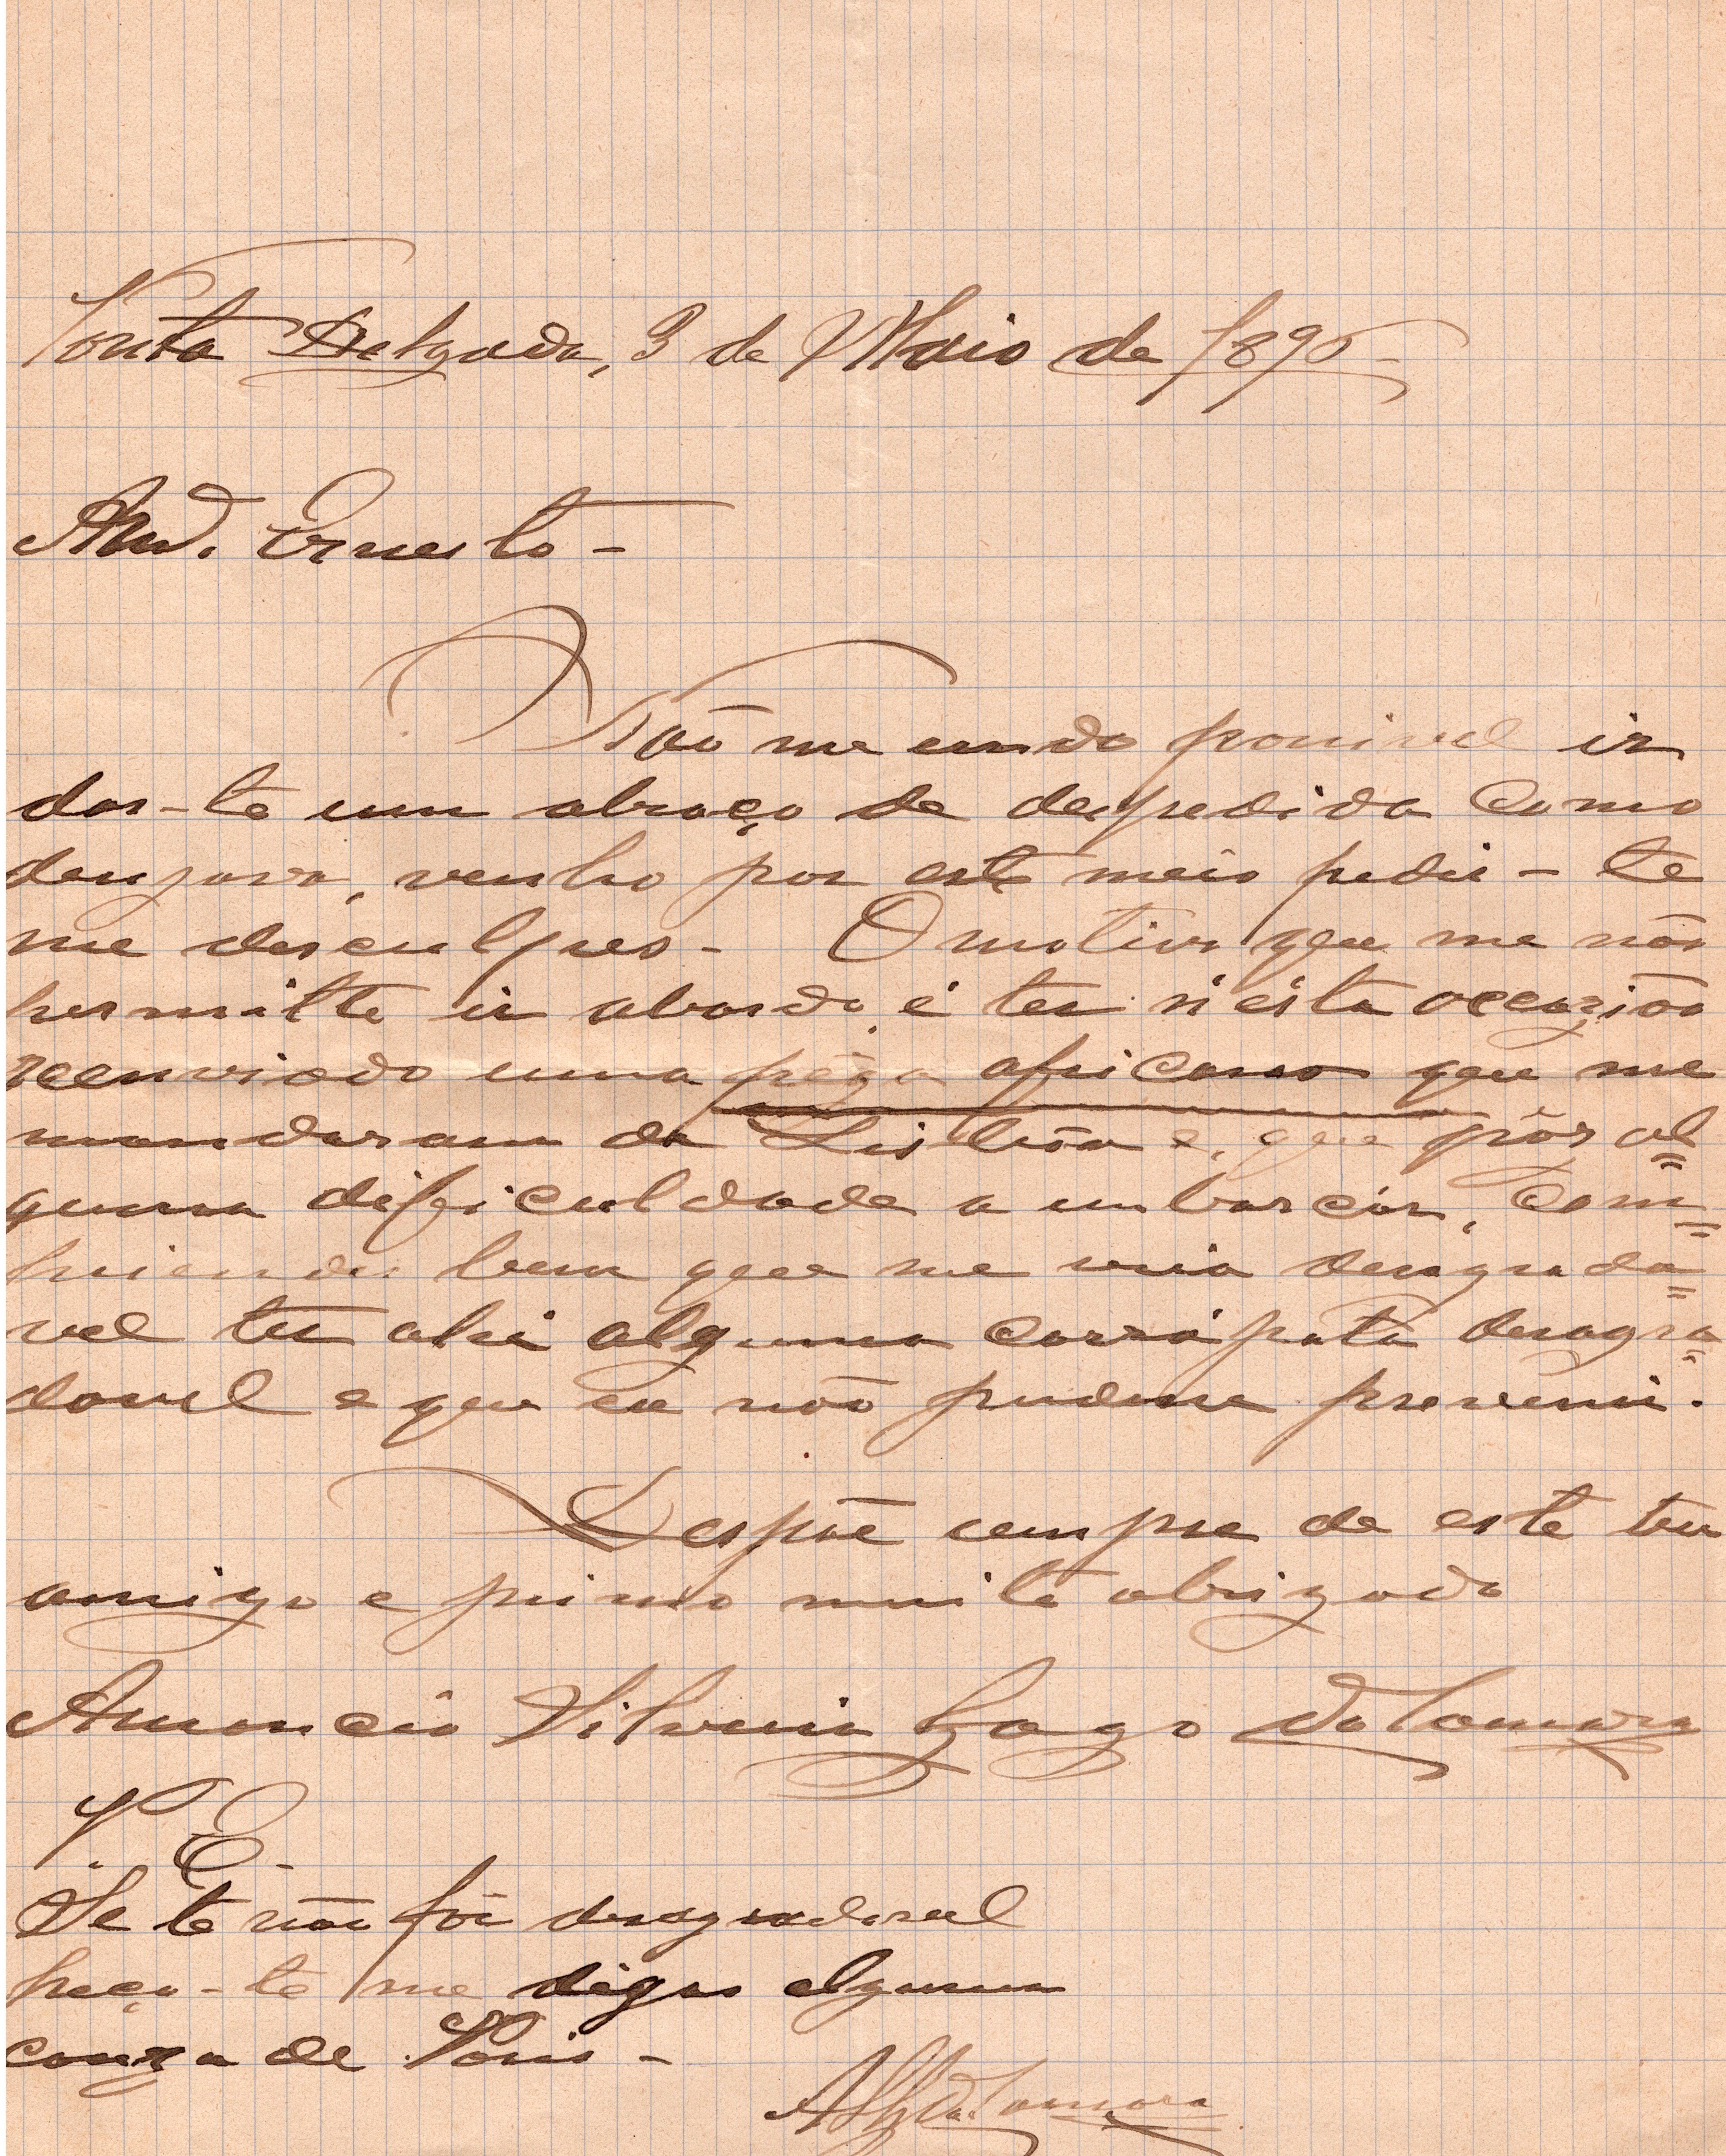 Ponta Delgada, 3 de Maio de 1896
Ernesto -
Não me sendo possivel ir
dar-te um abraço de despedida como
desejava, venho por este meio pedir-te
me desculpes - O motivo que me não
permitte ir abordo, é ter n'esta occazião
reenviado uma peça africana que me
mandaram de Lisbôa e, que pôz al=
guma dificuldade a embarcar, com=
priendes bem que me seria desagrada=
vel ter ahi alguma desagra=
davel e que eu não pudesse prevenir.
Despõe sempre de este teu
amigo e primo muito obrigado
Amancio Silveira Gago da Camara
P. E. -
Se te não fôr desagradavel
peço-te me digas alguma
couza de Paris -
ASG da Camara